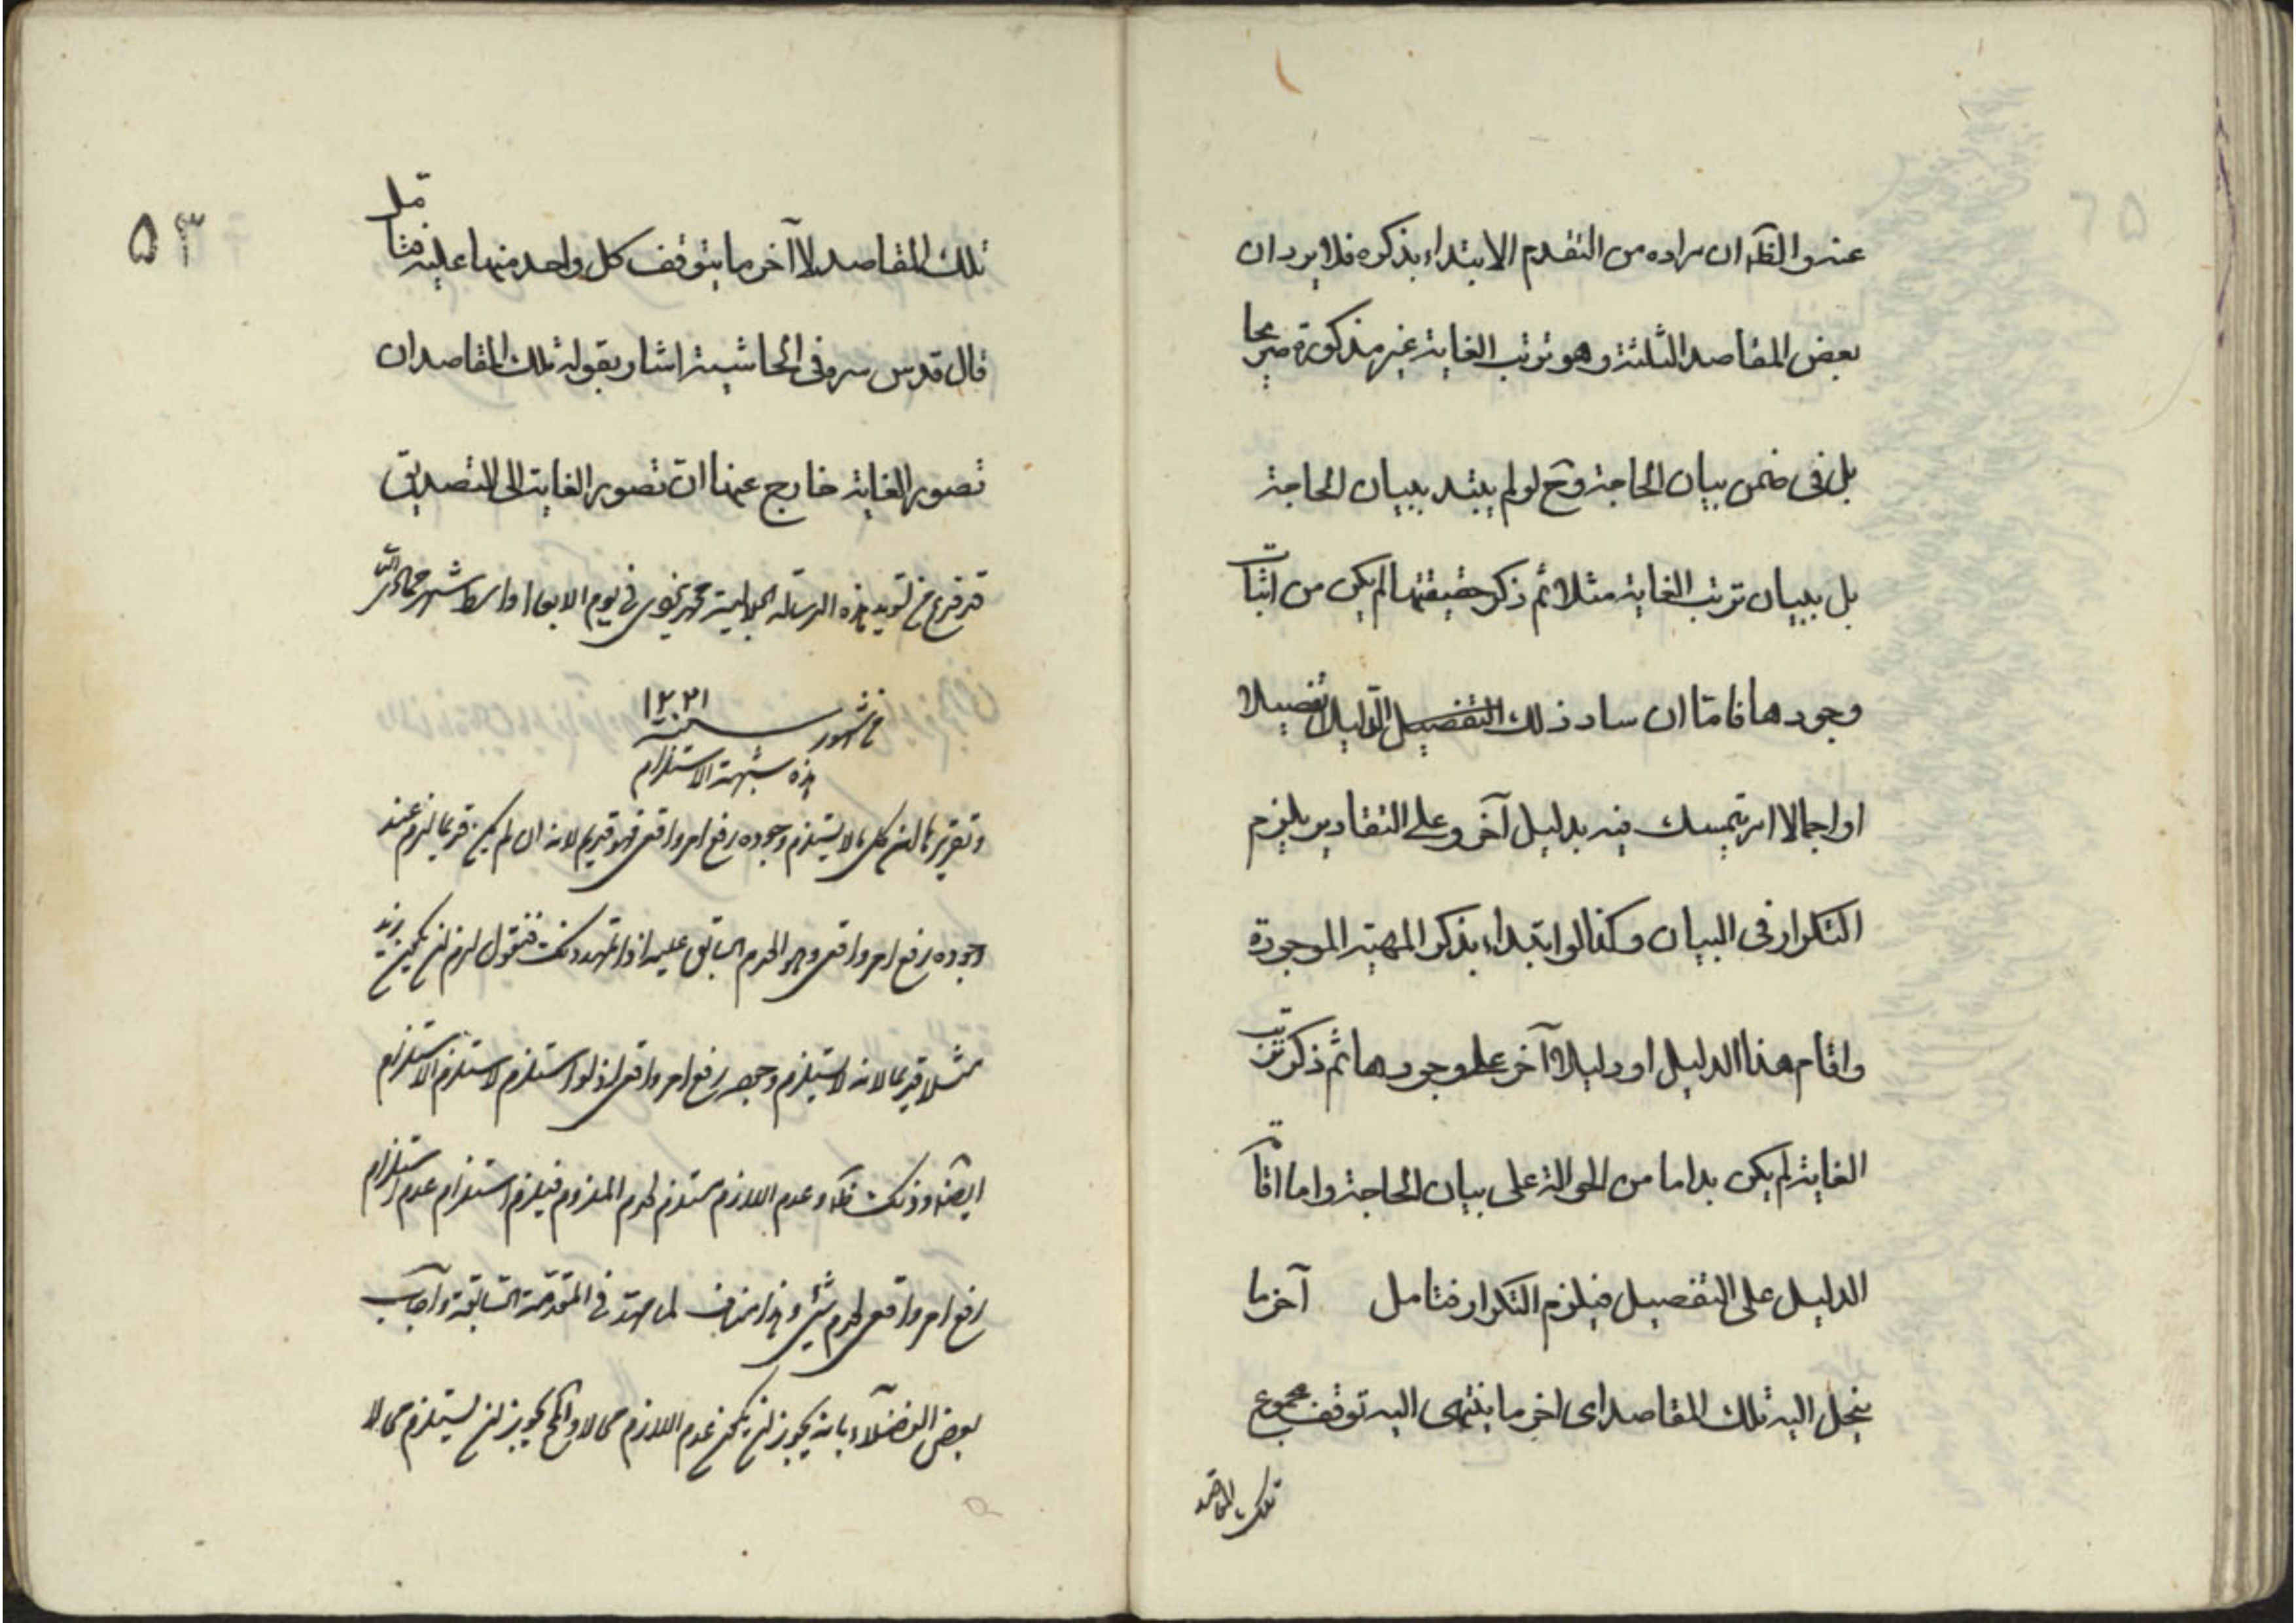 عنه والظ ان مراده من التقدم الابتداء بذكره فلا يرد ان
بعض المقاصد الثلثة وهو ترتب الغاية غير مذكورة صريحا
بل فى ضمن بيان الحاجة وح لو لم يبتد ببيان الحاجة
بل ببيان ترتب الغاية مثلا ثم ذكر حقيقتها لم يكن من اثبات
وجودها فامّا ان ساد ذلك التفصيل الدليل تفصيلا
او اجمالا او تمسك فيه بدليل آخر وعلى التقادير يلزم
التكرار فى البيان وكذا لو ابتداء بذكر المهية الموجودة
واقام هذا الدليل او دليلا آخر على وجودها ثم ذكر ترتب
الغاية لم يكن بد اما من الحوالة على بيان الحاجة واما اقامة
الدليل على التفصيل فيلزم التكرار فتامل آخر ما
ينحل اليه تلك المقاصد اى اخر ما ينتهى اليه توقف مجموع
تلك المقاصد
۵۳
تلك المقاصد لا آخر ما يتوقف كل واحد منها عليه فتامل
قال قدس سره فى الحاشية اشار بقوله تلك المقاصد ان
تصور الغاية خارج عنها ان تصور الغاية الى التصديق
قد فرغ من تسويد هذه الرسالة الجلالية محمد فى يوم الاربعا اواسط شهر جمادى
من شهور سنة ١٢٢١
هذه شبهة الاستلزام
وتقريرها ان كل ما لا يستلزم وجوده رفع امر واقعى فهو قديم لانه ان لم يكن قديما لزم عند
وجوده رفع امر واقعى وهو العدم السابق عليه اذا تمهد ذلك فنقول لزم ان يكون زيد
مثلا قديما لانه لا يستلزم وجوده رفع امر واقعى اذ لو استلزم لاستلزم الاستلزام
ايضا وذلك ظ وعدم اللازم مستلزم لعدم الملزوم فيلزم استلزام عدم استلزام
رفع امر واقعى لعدم شئ وهذا مناف لما مهد فى المقدمة السابقة واجاب
بعض الفضلاء بانه يجوز ان يكون عدم اللازم محالا والمح يجوز ان يستلزم محالا